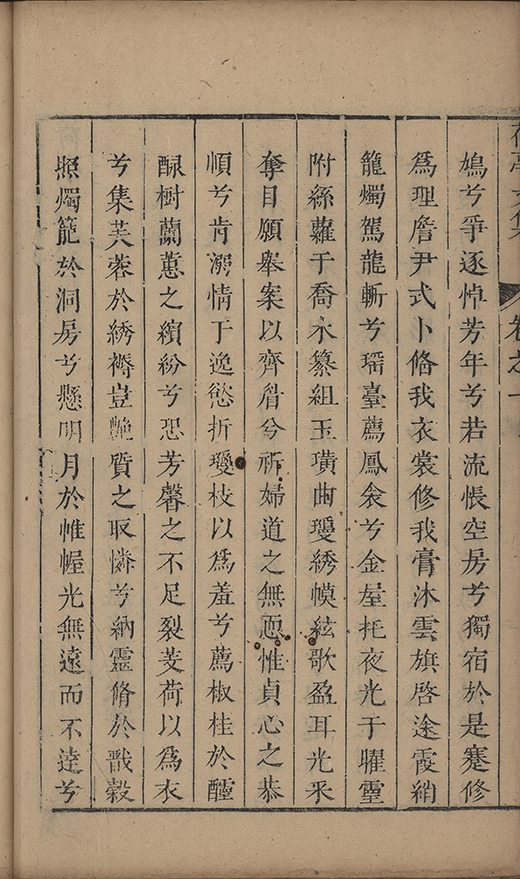 亭文集 卷之
鳩兮爭逐悼芳年兮若流悵空房兮獨宿於是蹇修
爲理詹尹式卜脩我衣裳修我膏沐雲旗啓途霞綃
籠燭駕龍斬兮瑤臺薦鳳衾兮金屋托夜光于曜靈
附絲蘿于喬木纂組玉璜曲瓊綉幙絃歌盈耳光采
奪目願舉案以齊眉兮祈婦道之無愆惟貞心之恭
順兮肯溺情于逸慾折瓊枝以爲羞兮薦椒桂於醴
醁樹蘭蕙之繽紛兮恐芳馨之不足裂芰荷以爲衣
兮集芙蓉於綉褥豈艷質之取憐兮納靈脩於戩穀
照燭籠於洞房兮懸明月於帷幄光無遠而不逹兮